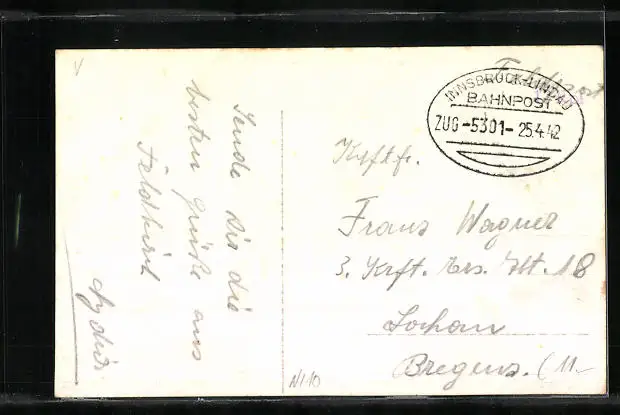 Feldpost
INNSBRUCK-LINDAU
BAHNPOST
ZUG-5301-25.4.42
Krftf.
Franz Wagner
3. Krft. Ers. Abt. 18
Lochau
Bregenz. (11.-
Sende Dir die
besten Grüße aus
Feldkirch
N110